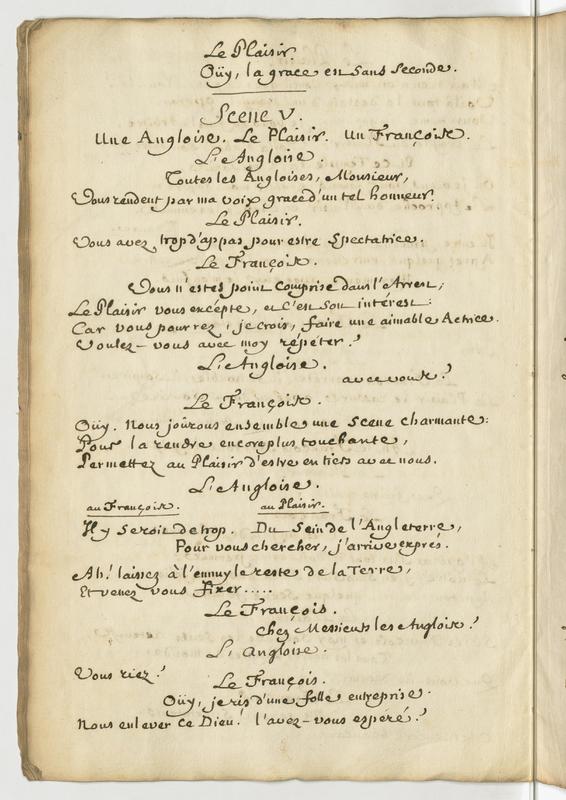 Le Plaisir.
Oüy, la grace est sans seconde.
Scene V.
Une Angloise. Le Plaisir. Un François.
L'Angloise.
Toutes les Angloises, Monsieur,
Vous rendent par ma voix grace d'un tel honneur.
Le Plaisir.
Vous avez trop d'appas pour estre Spectatrice.
Le François.
Vous n'estes point Comprise dans l'Arrest;
Le Plaisir vous excépte, et C'est Son intérest:
Car vous pourrez, je crois, faire une aimable Actrice.
Voulez-vous avec moy répéter?
L'Angloise.
avec vous?
Le François.
Oüy. Nous joürons ensemble une Scene charmante:
Pour la rendre encore plus touchante,
Permettez au Plaisir d'estre en tiers avec nous.
L'Angloise.
au François. au Plaisir.
Il y Seroit de trop. Du Sein de l'Angleterre,
Pour vous chercher, j'arrive exprés.
Ah! laissez à l'ennuy le reste de la Terre,
Et venez vous fixer.....
Le François.
Chez Messieurs les Anglois?
L'Angloise.
Vous riez?
Le François.
Oüy, je ris d'une folle entreprise.
Nous enlever ce Dieu! l'avez-vous espéré?